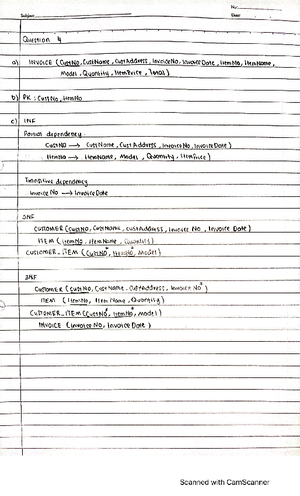 No:
Subject
Date
Question 4
a) INVOICE (CustNo, CustName, CustAddress, InvoiceNo, InvoiceDate, ItemNo, ItemName,
Model, Quantity, ItemPrice, Total)
b) PK : CustNo, ItemNo
c) 1NF
Partial dependency.
CustNO → CustName, Cust Address, InvoiceNo, InvoiceDate)
ItemNo → ItemName, Model, Quantity, ItemPrice)
Transitive dependency
Invoice No → InvoiceDate
2NF
CUSTOMER (CustNo, CustName, custAddress, Invoice No, Invoice Date)
ITEM (ItemNo, ItemName, Quantity)
CUSTOMER_ITEM (CustNO*, ItemNo*, Model)
3NF
CUSTOMER (CustNo, CustName, CustAddress, Invoice No*)
ITEM (ItemNo, Item Name, Quantity)
CUSTOMER_ITEM (CustNo*, ItemNo*, model)
INVOICE (Invoice No, Invoice Date)
Scanned with CamScanner